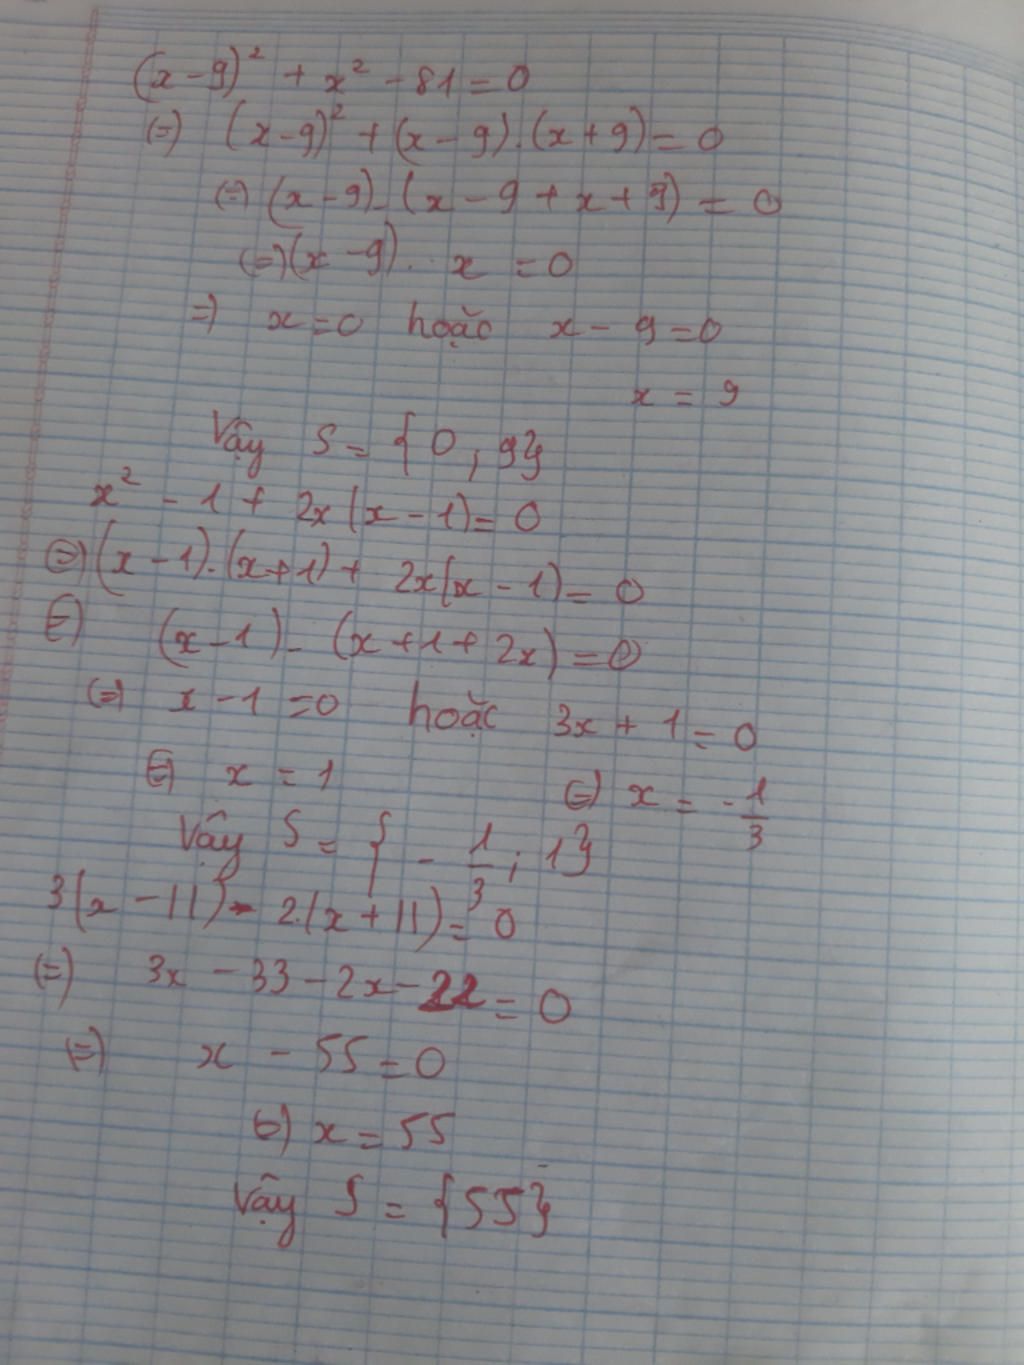 (x-9)² + x² - 81 = 0
(=) (x-9)² + (x-9).(x+9) = 0
(=) (x-9).(x-9+x+9) = 0
(=) (x-9). x = 0
=) x=0 hoặc x-9=0
x = 9
Vậy S = {0, 9}
x² - 1 + 2x(x-1) = 0
(=) (x-1).(x+1) + 2x(x-1) = 0
(=) (x-1). (x+1+2x) = 0
(=) x-1=0 hoặc 3x+1=0
(=) x=1 (=) x = -1/3
Vậy S = {-1/3; 1}
3(x-11) - 2.(x+11) = 0
(=) 3x - 33 - 2x - 22 = 0
(=) x - 55 = 0
(=) x = 55
Vậy S = {55}